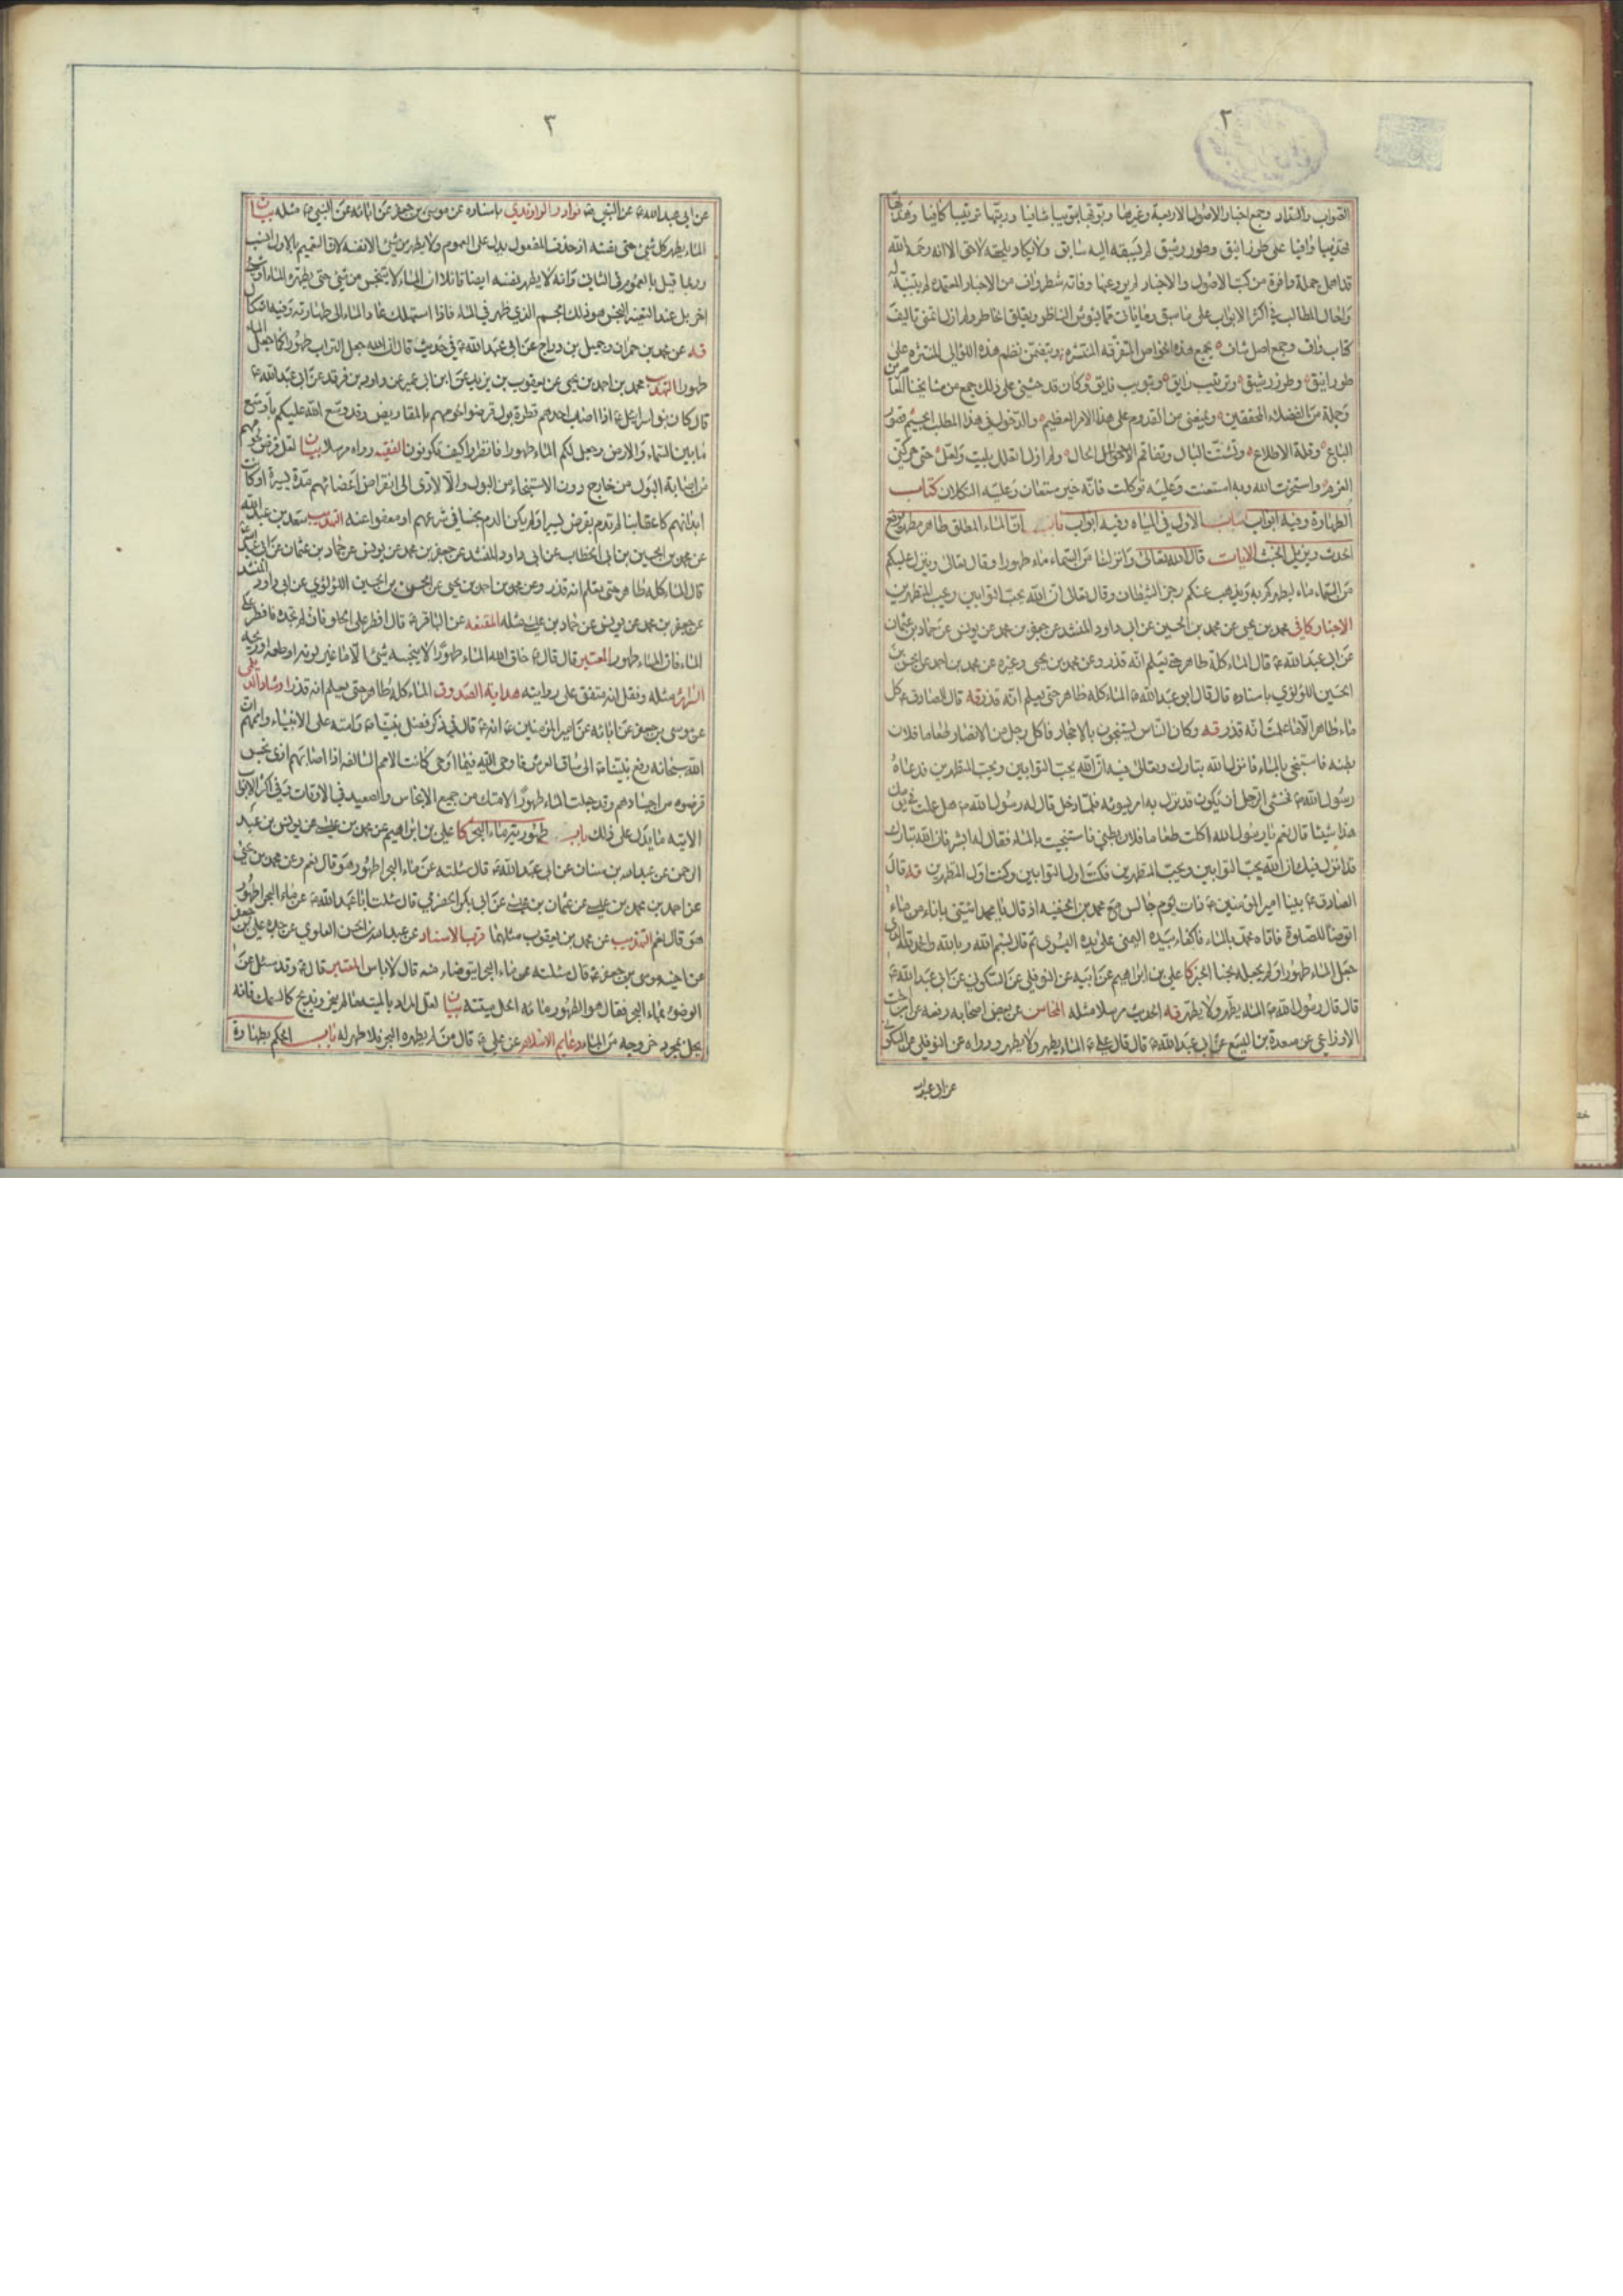 ٢
الصواب والسداد وجمع اخبار الاصول الاربعة وغيرها وبوّبها تبويبا شافيا ورتبها ترتيبا كافيا وهذبها
تهذيبا وافيا على طرز انيق وطور رشيق لم يسبقه اليه سابق ولا يكاد يلحقه لاحق الا انه رحمه الله
قد اهمل جملة وافرة من كتب الاصول والاخبار لم يرو عنها وفاته شطر واف من الاخبار المعتمدة لم يتنبه له
واحال المطالب في اكثر الابواب على ما سبق وما يأت مما يشوش الناظر ويقلق الخاطر ولم ازل اتمنى تاليف
كتاب واف وجمع اصل شاف يجمع هذه الخواص المتفرقة المنتشرة ويتضمن نظم هذه اللؤالي المنتثرة على
طور انيق وطرز رشيق وترتيب رايق وتبويب فايق وكان قد حثني على ذلك جمع من مشايخنا
وجملة من الفضلاء المحققين ويمنعني من القدوم على هذا الامر العظيم والدخول في هذا المطلب الجسيم قصور
الباع وقلة الاطلاع وتشتت البال وتفاقم الاحوال ولم ازل اتعلل بليت ولعل حتى حركني
العزم واستخرت الله وبه استعنت وعليه توكلت فانه خير مستعان وعليه التكلان كتاب
الطهارة وفيه ابواب باب الاول في المياه وفيه ابواب باب ان الماء المطلق طاهر مطهر يرفع
الحدث ويزيل الخبث الايات قال الله تعالى وانزلنا من السماء ماء طهورا وقال تعالى وينزل عليكم
من السماء ماء ليطهركم به ويذهب عنكم رجز الشيطان وقال تعالى ان الله يحب التوابين ويحب المتطهرين
الاخبار كافي محمد بن يحيى عن محمد بن الحسين عن ابي داود المنشد عن جعفر بن محمد عن يونس عن حماد بن عثمان
عن ابي عبد الله ع قال الماء كله طاهر حتى يعلم انه قذر وعن محمد بن يحيى وغيره عن محمد بن احمد عن الحسن بن
الحسين اللؤلؤي باسناده قال قال ابو عبد الله ع الماء كله طاهر حتى يعلم انه قذر قه قال الصادق ع كل
ماء طاهر الا ما علمت انه قذر قه وكان الناس يستنجون بالاحجار فاكل رجل من الانصار طعاما فلان
بطنه فاستنجى بالماء فانزل الله تبارك وتعالى فيه ان الله يحب التوابين ويحب المتطهرين فدعاه
رسول الله ص فخشى الرجل ان يكون قد نزل به امر يسوئه فلما دخل قال له رسول الله ص هل عملت في يومك
هذا شيئا قال نعم يا رسول الله اكلت طعاما فلان بطني فاستنجيت بالماء فقال له ابشر فان الله تبارك
قد انزل فيك ان الله يحب التوابين ويحب المتطهرين فكنت اول التوابين وكنت اول المتطهرين قه قال
الصادق ع بينا امير المؤمنين ع ذات يوم جالس مع محمد بن الحنفيه اذ قال يا محمد ائتني باناء من ماء
اتوضأ للصلوة فاتاه محمد بالماء فاكفاء بيده اليمنى على يده اليسرى ثم قال بسم الله وبالله والحمد لله الذي
جعل الماء طهورا ولم يجعله نجسا الخبر كا علي بن ابراهيم عن ابيه عن النوفلي عن السكوني عن ابي عبد الله ع
قال قال رسول الله ص الماء يطهر ولا يطهر قه الحديث مرسلا مثله المحاسن عن بعض اصحابه رفعه عن
الاوزاعي عن مسعدة بن اليسع عن ابي عبد الله ع قال قال علي ع الماء يطهر ولا يطهر ورواه عن النوفلي عن السكوني
عن ابي عبد الله
٣
عن ابي عبد الله ع عن النبي ص نوادر الراوندي باسناده عن موسى بن جعفر عن ابائه عن النبي ص مثله بيان
الماء يطهر كل شيئ حتى نفسه اذ حذف المفعول يدل على العموم ولا يطهر من شيئ الا نفسه لان التعميم بالاول انسب
وربما قيل بالعموم في الثاني وانه لا يطهر بنفسه ايضا قائلا ان الماء لا يتنجس من شيئ حتى يطهره الماء او شيئ
اخر بل عند التغير النجس هو ذلك الجسم الذي ظهر في الماء فاذا استهلك عاد الماء الى طهارته وفيه اشكال
قه عن محمد بن حمران وجميل بن دراج عن ابي عبد الله ع في حديث قال ان الله جعل التراب طهورا كما جعل الماء
طهورا التهذيب محمد بن احمد بن يحيى عن يعقوب بن يزيد عن ابن ابي عمير عن داود بن فرقد عن ابي عبد الله ع
قال كان بنو اسرائيل اذا اصاب احدهم قطرة بول قرضوا لحومهم بالمقاريض وقد وسع الله عليكم باوسع
ما بين السماء والارض وجعل لكم الماء طهورا فانظروا كيف تكونون الفقيه ورواه مرسلا بيان لعل قرض لحومهم
من اصابة البول من خارج دون الاستنجاء من البول والا لادى الى انقراض اعضائهم مدة يسيرة او كان
ابدانهم كاعقابنا لم تدم بقرض يسير او لم يكن الدم نجسا في شرعهم او معفوا عنه التهذيب سعد بن عبد الله
عن محمد بن الحسين بن ابي الخطاب عن ابي داود المنشد عن جعفر بن محمد عن يونس عن حماد بن عثمان عن ابي عبد الله ع
قال الماء كله طاهر حتى يعلم انه قذر وعن محمد بن احمد بن يحيى عن الحسن بن الحسين اللؤلؤي عن ابي داود المنشد
عن جعفر بن محمد عن يونس عن حماد بن عيسى مثله المقنعه عن الباقر ع قال افطر على الحلو فان لم تجده فافطر على
الماء فان الماء طهور المعتبر قال قال ع خلق الله الماء طهورا لا ينجسه شيئ الا ما غير لونه او طعمه او ريحه
السرائر مثله ونقل انه متفق على روايته هداية الصدوق الماء كله طاهر حتى يعلم انه قذر ارشاد الديلمي
عن موسى بن جعفر عن ابائه عن امير المؤمنين ع انه ع قال في ذكر فضل نبينا ص وامته على الانبياء واممهم ان
الله سبحانه رفع نبينا ص الى ساق العرش فاوحى اليه فيما اوحى كانت الامم السالفه اذا اصابهم اذى نجس
قرضوه من اجسادهم وقد جعلت الماء طهورا لامتك من جميع الانجاس والصعيد في الاوقات وفي اكثر الابواب
الاتيه ما يدل على ذلك باب طهورية ماء البحر كا علي بن ابراهيم عن محمد بن عيسى عن يونس بن عبد
الرحمن عن عبد الله بن سنان عن ابي عبد الله ع قال سئلته عن ماء البحر اطهور هو قال نعم وعن محمد بن يحيى
عن احمد بن محمد بن عيسى عن عثمان بن عيسى عن ابي بكر الحضرمي قال سئلت ابا عبد الله ع عن ماء البحر اطهور
هو قال نعم التهذيب عن محمد بن يعقوب مثلهما قرب الاسناد عن عبد الله بن الحسن العلوي عن جده علي بن جعفر
عن اخيه موسى بن جعفر ع قال سئلته عن ماء البحر ايتوضاء منه قال لا باس المعتبر قال ع وقد سئل عن
الوضوء بماء البحر فقال هو الطهور ماؤه الحل ميتته بيان لعل المراد بالميته ما لم ينحر ويذبح كالسمك فانه
يحل بمجرد خروجه من الماء دعايم الاسلام عن علي ع قال من لم يطهره البحر فلا طهر له باب الحكم بطهارة